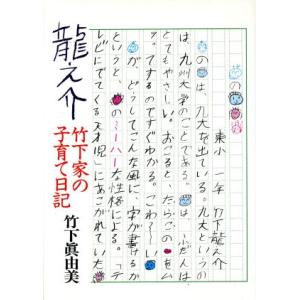 の
東小 一年 竹下龍之介
の は、九大を出ている。九大というの
は、九州大学のことである。 は、ふだんは、
とてもやさしい。おこると、たらこの を
ってするのですぐわかる。こわ〜い
が、どうしてこんな風に、字が書けるか
というと、 のミーハーな性格による。「テ
レビにでてくる天才児」にあこがれていた
龍之介
竹下家の
子育て日記
竹下眞由美